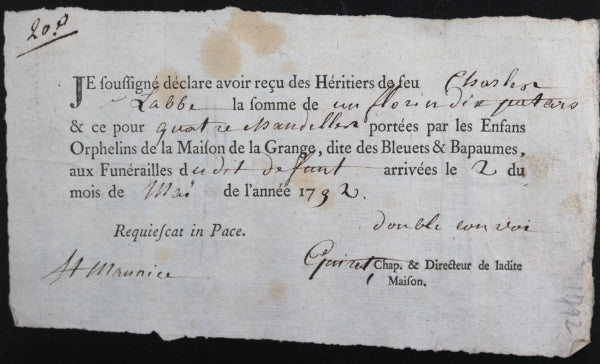 20 p
JE souſſigné déclare avoir reçu des Héritiers de feu Charles
Labbe la ſomme de un florin dix patars
& ce pour quatre chandelles portées par les Enfans
Orphelins de la Maiſon de la Grange, dite des Bleuets & Bapaumes,
aux Funérailles dudit defunt arrivées le 2 du
mois de Mai de l'année 1792.
double convoi
Requieſcat in Pace.
St Maurice
Chap. & Directeur de ladite
Maiſon.
1792